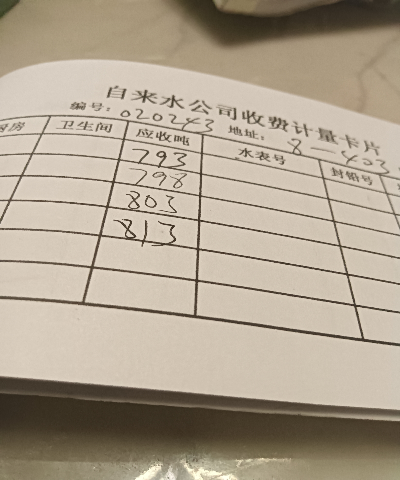 自来水公司收费计量卡片
编号: 020243 地址: 8-403
厨房 卫生间 应收吨 水表号 封铅号
793
798
803
813